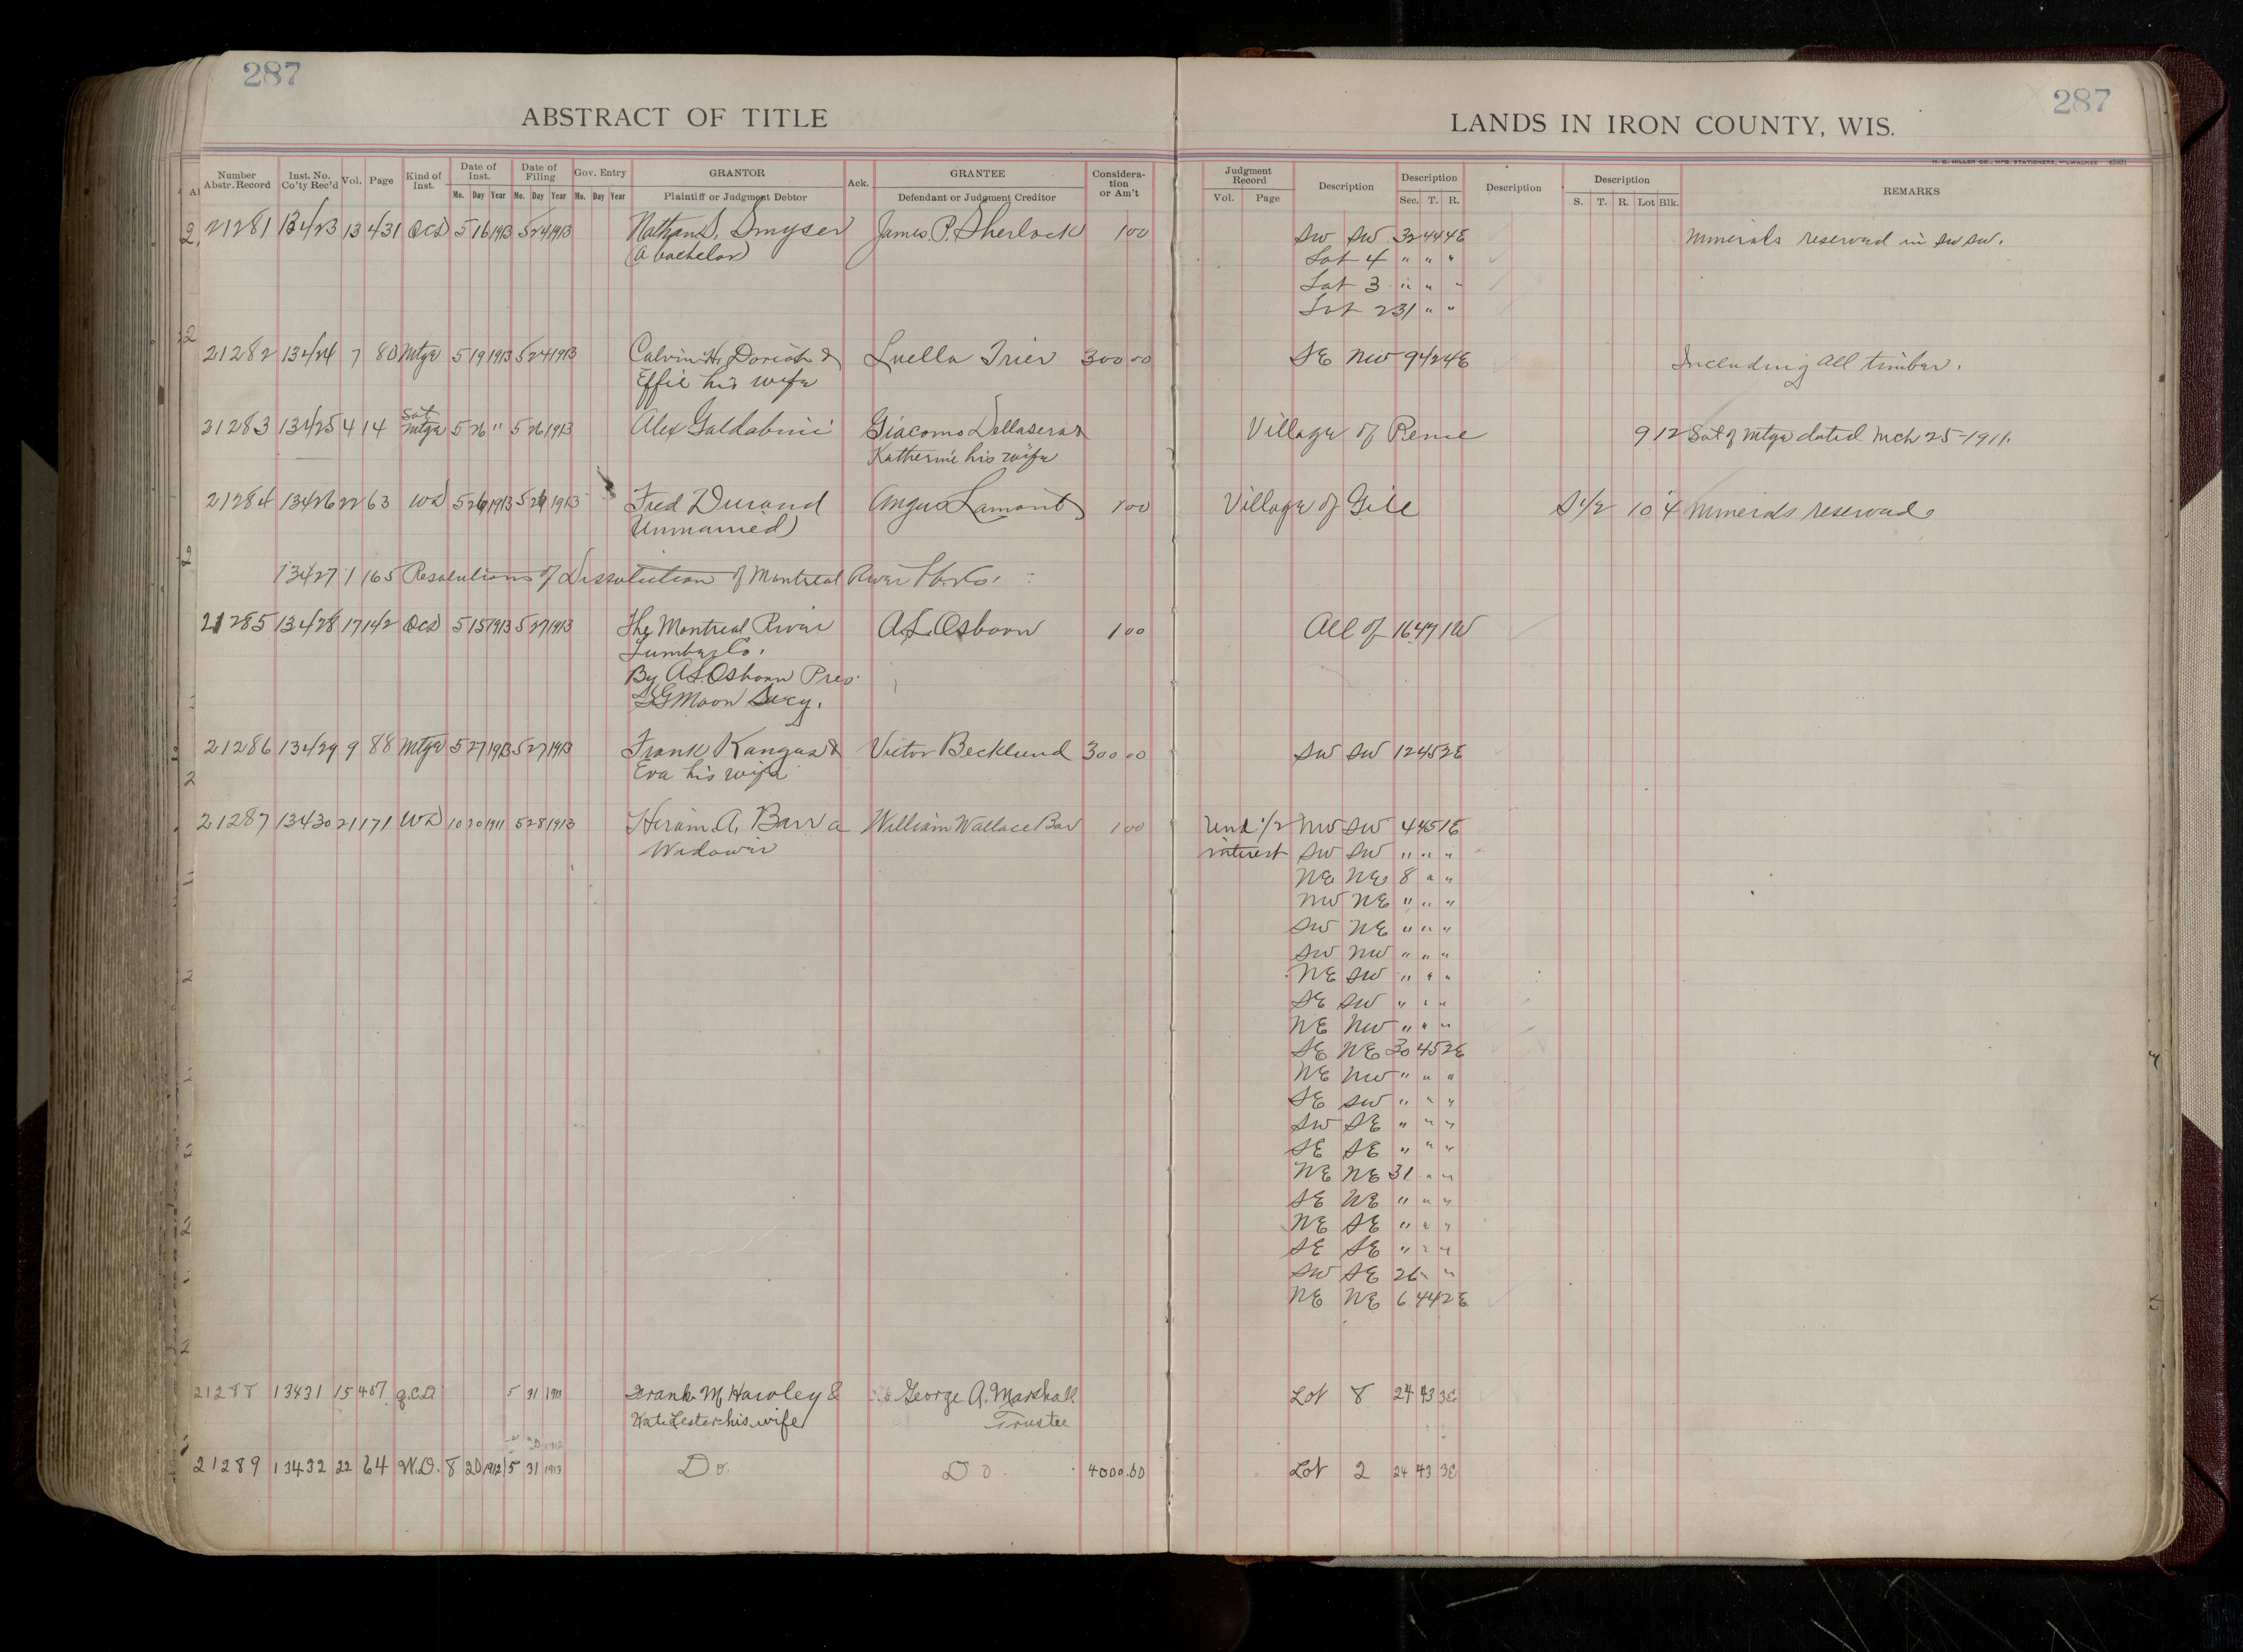 287
287
ABSTRACT OF TITLE
LANDS IN IRON COUNTY, WIS.
H. G. MILLER CO., MFG. STATIONERS, MILWAUKEE
Number Abstr. Record Inst. No. Co'ty Rec'd Vol. Page Kind of Inst. Date of Inst. Mo. Day Year Date of Filing Mo. Day Year Gov. Entry Mo. Day Year GRANTOR Plaintiff or Judgment Debtor Ack. GRANTEE Defendant or Judgment Creditor Consideration or Am't Judgment Record Vol. Page Description Description Sec. T. R. Description Description S. T. R. Lot Blk. REMARKS
21281 13423 13 431 QCD 5 16 1913 5 24 1913 Nathan S. Smyser James P. Sherlock 1 00 SW SW 32 44 4E Minerals reserved in SW SW.
(a bachelor) Lot 4 " " "
Lot 3 " " "
Lot 2 31 " "
21282 13424 7 80 Mtge 5 19 1913 5 24 1913 Calvin H. Dorich & Luella Trier 300 00 SE NW 9 42 4E Including all timber.
Effie his wife
21283 13425 4 14 Sat Mtge 5 26 " 5 26 1913 Alex Galdabini Giacomo Dellasera & Village of Pence 9 12 Sat of Mtge dated Mch 25-1911.
Katherine his wife
21284 13426 22 63 WD 5 26 1913 5 26 1913 Fred Durand Angus Lamont 1 00 Village of Gile S 1/2 10 4 Minerals reserved
(Unmarried)
13427 1 165 Resolutions of Dissolution of Montreal River Lbr Co.
21285 13428 17 142 QCD 5 15 1913 5 27 1913 The Montreal River A.L. Osborn 1 00 All of 16 47 1W
Lumber Co.
By A.L. Osborn Pres.
S G Moon Secy.
21286 13429 9 88 Mtge 5 27 1913 5 27 1913 Frank Kangas & Victor Becklund 300 00 SW SW 12 45 2E
Eva his wife
21287 13430 21 171 WD 10 20 1911 5 28 1913 Hiram A. Barr a William Wallace Bar 1 00 Und 1/2 NW SW 4 45 1E
Widower interest SW SW " " "
NE NE 8 " "
NW NE " " "
SW NE " " "
SW NW " " "
NE SW " " "
SE SW " " "
NE NW " " "
SE NE 30 45 2E
NE NW " " "
SE SW " " "
SW SE " " "
SE SE " " "
NE NE 31 " "
SE NE " " "
NE SE " " "
SE SE " " "
SW SE 26 " "
NE NE 6 44 2E
21288 13431 15 407 Q.C.D 5 31 1913 Frank M Hawley & George A. Marshall Lot 8 24 43 3E
Kate Lester his wife Trustee
21289 13432 22 64 W.D. 8 20 1912 5 31 1913 Do. Do. 4000.00 Lot 2 24 43 3E